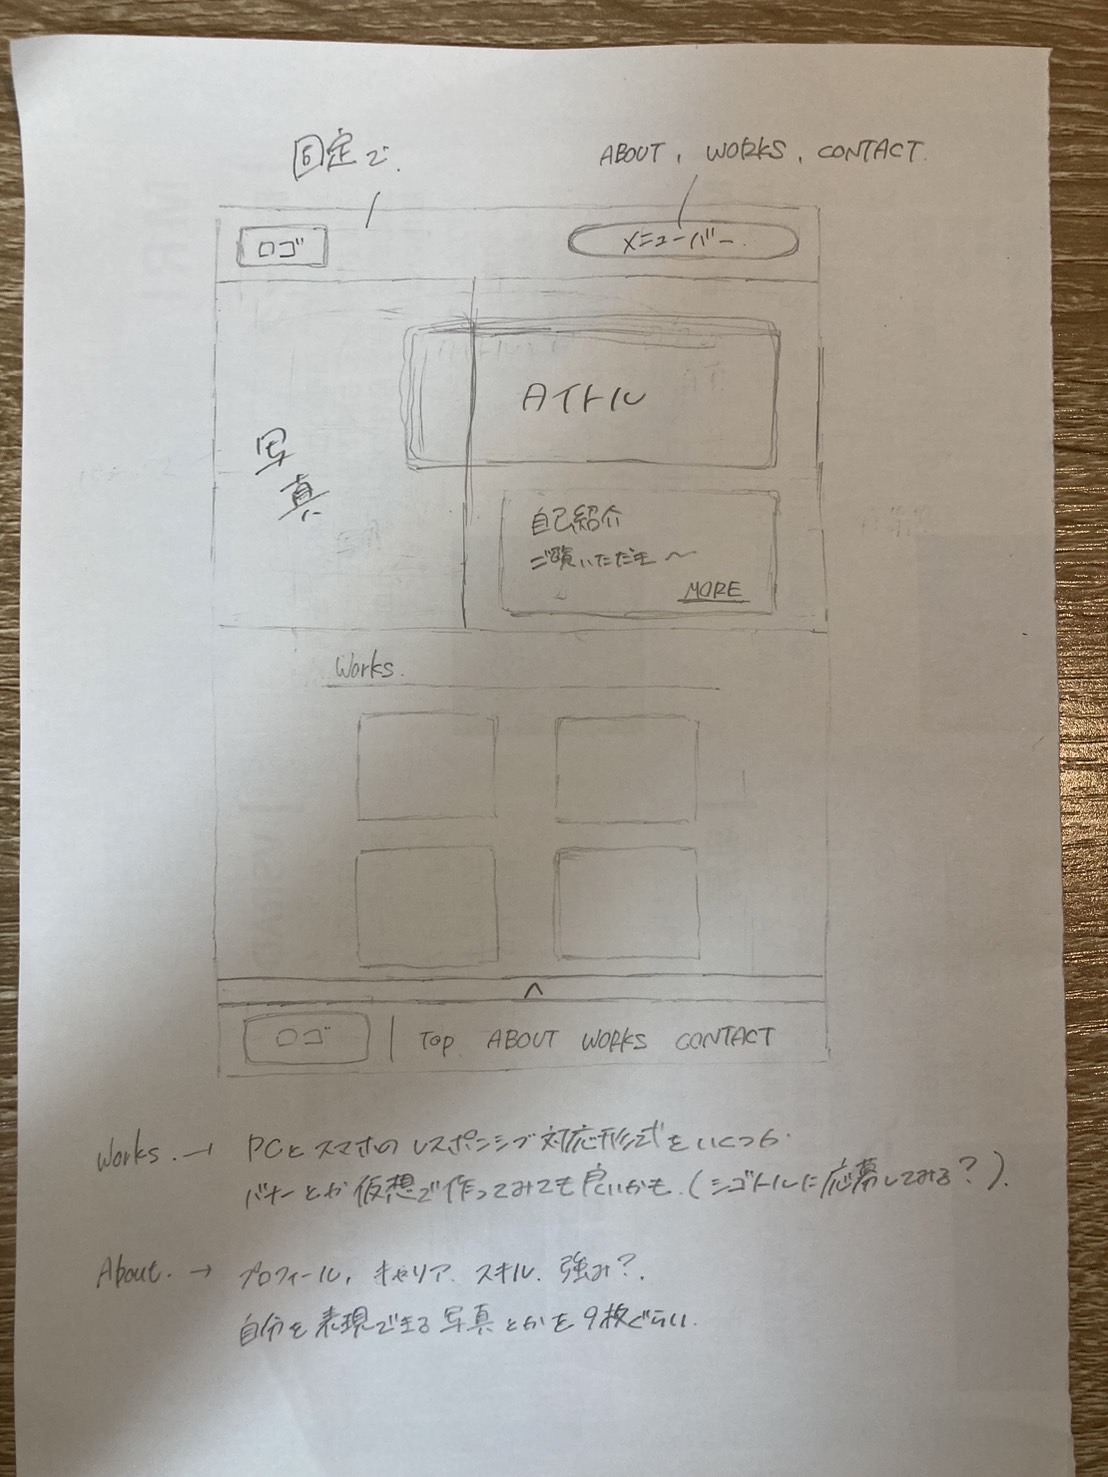 固定で.
ABOUT, WORKS, CONTACT.
ロゴ
メニューバー.
タイトル
写真
自己紹介
ご覧いただき〜
MORE
Works.
^
ロゴ | Top ABOUT WORKS CONTACT
Works. → PCとスマホのレスポンシブ対応形式をいくつか.
バナーとか仮想で作ってみても良いかも.(シゴトルに応募してみる?).
About. → プロフィール, キャリア. スキル. 強み?.
自分を表現できる写真とかを9枚ぐらい.